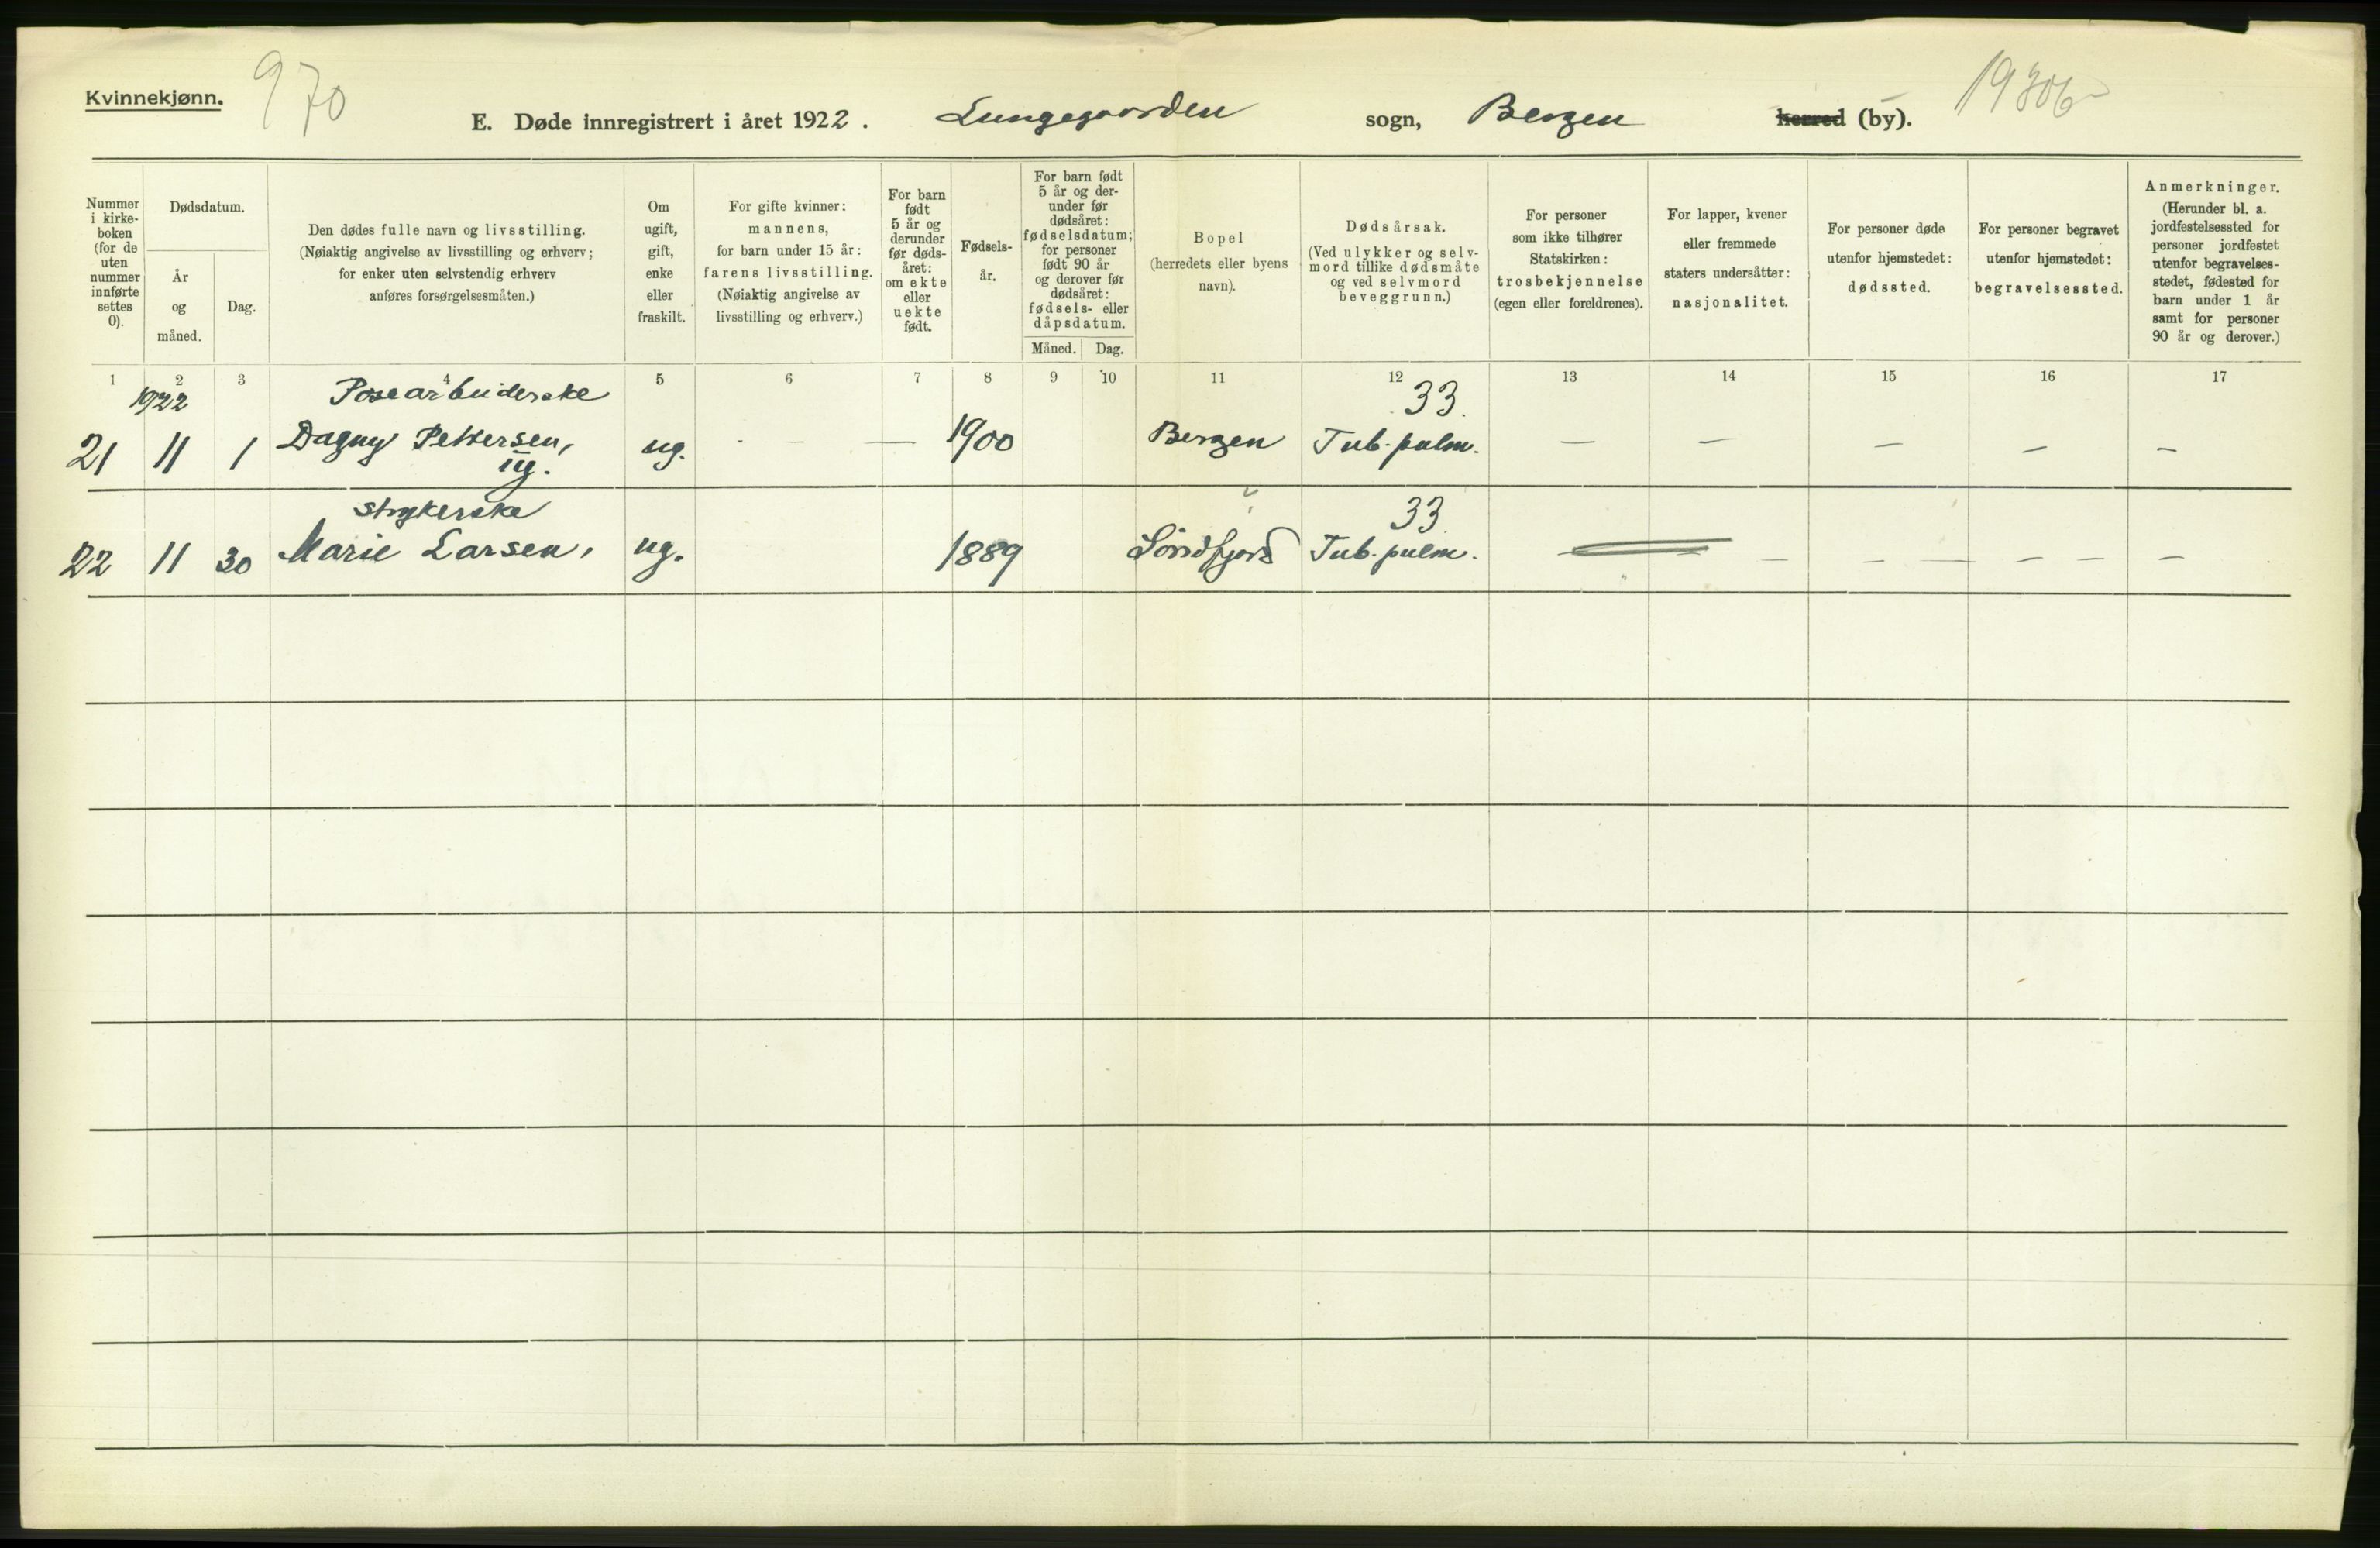 Kvinnekjønn.
970
E. Døde innregistrert i året 1922. Lungegaarden sogn, Bergen herred (by).
Nummer
i kirke-
boken
(for de
uten
nummer
innførte
settes
0).
Dødsdatum.
År
og
måned.
Dag.
Den dødes fulle navn og livsstilling.
(Nøiaktig angivelse av livsstilling og erhverv;
for enker uten selvstendig erhverv
anføres forsørgelsesmåten.)
Om
ugift,
gift,
enke
eller
fraskilt.
For gifte kvinner:
mannens,
for barn under 15 år:
farens livsstilling.
(Nøiaktig angivelse av
livsstilling og erhverv.)
For barn
født
5 år og
derunder
før døds-
året:
om ekte
eller
uekte
født.
Fødsels-
år.
For barn født
5 år og der-
under før
dødsåret:
fødselsdatum;
for personer
født 90 år
og derover før
dødsåret:
fødsels- eller
dåpsdatum.
Måned. Dag.
Bopel
(herredets eller byens
navn).
Dødsårsak.
(Ved ulykker og selv-
mord tillike dødsmåte
og ved selvmord
beveggrunn.)
For personer
som ikke tilhører
Statskirken:
trosbekjennelse
(egen eller foreldrenes).
For lapper, kvener
eller fremmede
staters undersåtter:
nasjonalitet.
For personer døde
utenfor hjemstedet:
dødssted.
For personer begravet
utenfor hjemstedet:
begravelsessted.
Anmerkninger.
(Herunder bl. a.
jordfestelsessted for
personer jordfestet
utenfor begravelses-
stedet, fødested for
barn under 1 år
samt for personer
90 år og derover.)
1 2 3 4 5 6 7 8 9 10 11 12 13 14 15 16 17
1922 Posearbeiderske 33.
21 11 1 Dagny Pettersen, ug. - — — 1900 Bergen Tub. pulm. — — — — —
strykerske 33
22 11 30 Marie Larsen, ug. 1889 Söndfjord Tub. pulm. — — — — — — —